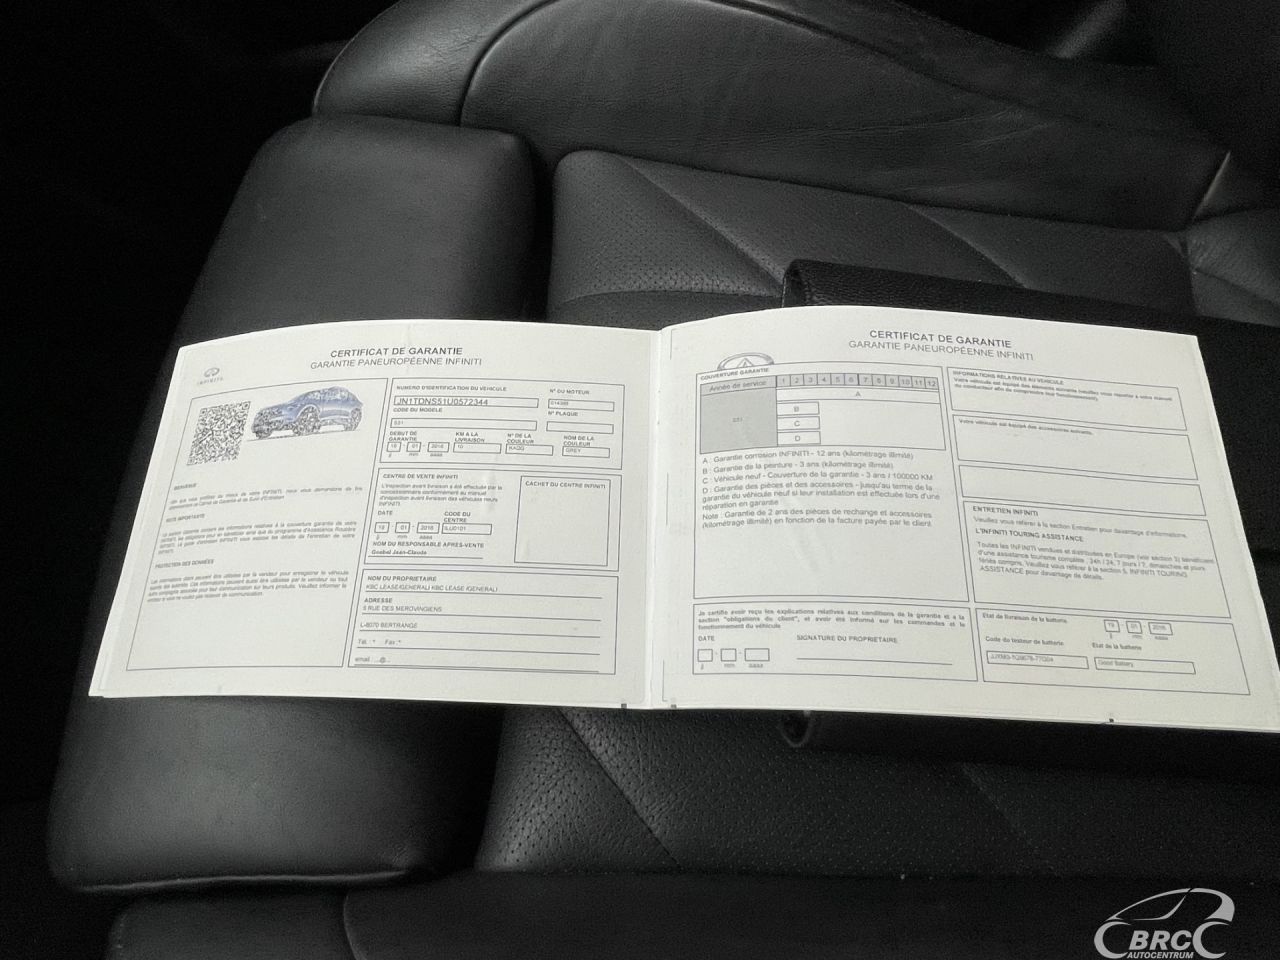 CERTIFICAT DE GARANTIE
GARANTIE PANEUROPÉENNE INFINITI
INFINITI
NUMERO D'IDENTIFICATION DU VEHICULE
JN1TDNS51U0572344
N° DU MOTEUR
CODE DU MODELE
S51
N° PLAQUE
DEBUT DE GARANTIE
19 01 2016
jj mm aaaa
KM A LA LIVRAISON
10
N° DE LA COULEUR
KADG
NOM DE LA COULEUR
GREY
CENTRE DE VENTE INFINITI
L'inspection avant livraison a été effectuée par le
concessionnaire conformément au manuel
d'inspection avant livraison des véhicules neufs
INFINITI.
DATE
19 01 2016
jj mm aaaa
CODE DU CENTRE
ILU0101
NOM DU RESPONSABLE APRES-VENTE
Goebel Jean-Claude
CACHET DU CENTRE INFINITI
NOM DU PROPRIETAIRE
KBC LEASE/GENERALI KBC LEASE /GENERALI
ADRESSE
5 RUE DES MEROVINGIENS
L-8070 BERTRANGE
Tél. : * Fax :*
email : ...@...
BIENVENUE
NOTE IMPORTANTE
PROTECTION DES DONNÉES
CERTIFICAT DE GARANTIE
GARANTIE PANEUROPÉENNE INFINITI
COUVERTURE GARANTIE
Année de service 1 2 3 4 5 6 7 8 9 10 11 12
S51
A
B
C
D
A : Garantie corrosion INFINITI - 12 ans (kilométrage illimité)
B : Garantie de la peinture - 3 ans (kilométrage illimité)
C : Véhicule neuf - Couverture de la garantie - 3 ans / 100000 KM
D : Garantie des pièces et des accessoires - jusqu'au terme de la
garantie du véhicule neuf si leur installation est effectuée lors d'une
réparation en garantie
Note : Garantie de 2 ans des pièces de rechange et accessoires
(kilométrage illimité) en fonction de la facture payée par le client.
Je certifie avoir reçu les explications relatives aux conditions de la garantie et a la
section "obligations du client", et avoir été informé sur les commandes et le
fonctionnement du véhicule
DATE
jj mm aaaa
SIGNATURE DU PROPRIETAIRE
INFORMATIONS RELATIVES AU VEHICULE
Votre véhicule est équipé des éléments suivants (veuillez vous reporter à votre manuel
du conducteur afin de comprendre leur fonctionnement).
Votre véhicule est équipé des accessoires suivants.
ENTRETIEN INFINITI
Veuillez vous référer à la section Entretien pour davantage d'informations.
L'INFINITI TOURING ASSISTANCE
Toutes les INFINITI vendues et distribuées en Europe (voir section 3) bénéficient
d'une assistance tourisme complète : 24h / 24, 7 jours / 7, dimanches et jours
fériés compris. Veuillez vous référer à la section 5, INFINITI TOURING
ASSISTANCE pour davantage de détails.
Etat de livraison de la batterie
19 01 2016
jj mm aaaa
Code du testeur de batterie
Etat de la batterie
Good Battery
BRC
AUTOCENTRUM